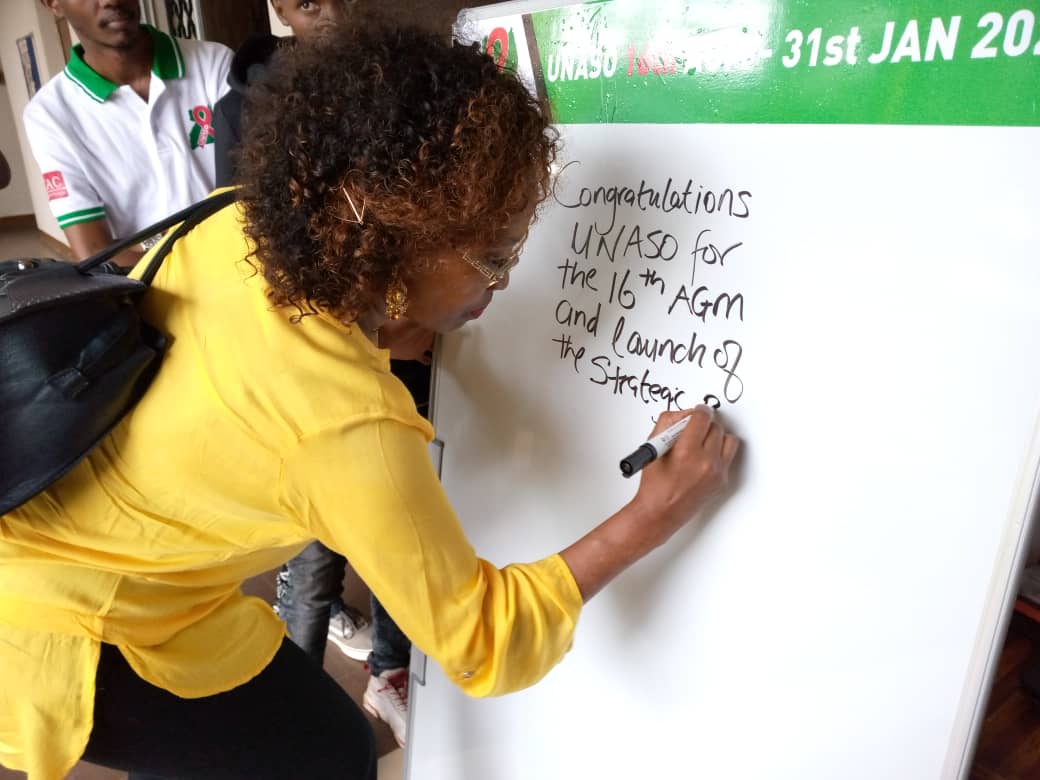 UNASO 16th AGM - 31st JAN 202
Congratulations
UNASO for
the 16th AGM
and launch of
the Strategic P
AC